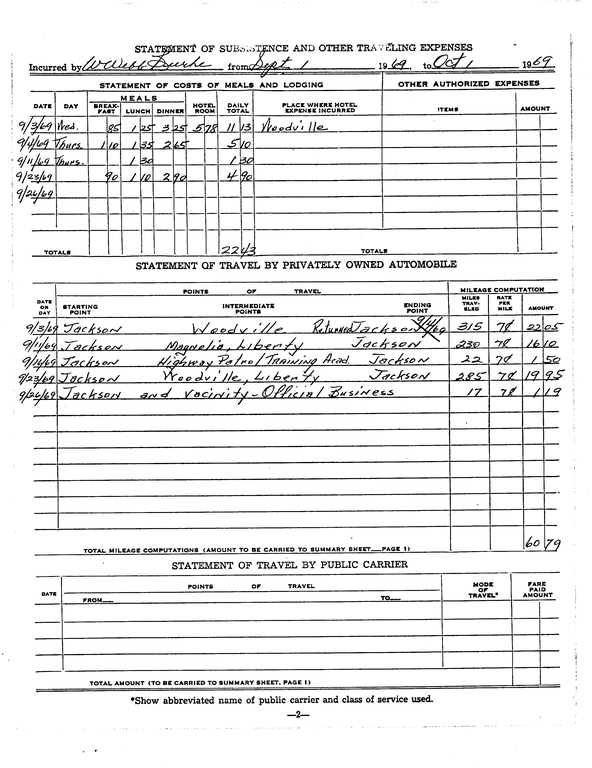 STATEMENT OF SUBSISTENCE AND OTHER TRAVELING EXPENSES
Incurred by W Webb Burke from Sept 1 1969, to Oct 1 1969
STATEMENT OF COSTS OF MEALS AND LODGING OTHER AUTHORIZED EXPENSES
DATE DAY MEALS BREAK-FAST LUNCH DINNER HOTEL ROOM DAILY TOTAL PLACE WHERE HOTEL EXPENSE INCURRED ITEMS AMOUNT
9/3/69 Wed. 85 1 25 3 25 5 78 11 13 Woodville
9/4/69 Thurs. 1 10 1 35 2 65 5 10
9/11/69 Thurs. 1 30 1 30
9/23/69 90 1 10 2 90 4 90
9/26/69
TOTALS 22 43 TOTALS
STATEMENT OF TRAVEL BY PRIVATELY OWNED AUTOMOBILE
POINTS OF TRAVEL MILEAGE COMPUTATION
DATE OR DAY STARTING POINT INTERMEDIATE POINTS ENDING POINT MILES TRAV-ELED RATE PER MILE AMOUNT
9/3/69 Jackson Woodville Returned Jackson 9/4/69 315 7¢ 22 05
9/11/69 Jackson Magnolia, Liberty Jackson 230 7¢ 16 10
9/16/69 Jackson Highway Patrol Training Acad. Jackson 22 7¢ 1 50
9/23/69 Jackson Woodville, Liberty Jackson 285 7¢ 19 95
9/26/69 Jackson and Vacinity - Official Business 17 7¢ 1 19
TOTAL MILEAGE COMPUTATIONS (AMOUNT TO BE CARRIED TO SUMMARY SHEET—PAGE 1) 60 79
STATEMENT OF TRAVEL BY PUBLIC CARRIER
DATE POINTS OF TRAVEL MODE OF TRAVEL* FARE PAID AMOUNT
FROM— TO—
TOTAL AMOUNT (TO BE CARRIED TO SUMMARY SHEET, PAGE 1)
*Show abbreviated name of public carrier and class of service used.
—2—